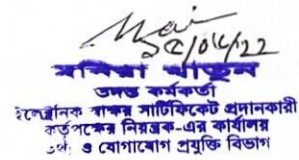 ২৫/০৫/২২
খাতুন
তদন্ত কর্মকর্তা
ইলেক্ট্রনিক স্বাক্ষর সার্টিফিকেট প্রদানকারী
কর্তৃপক্ষের নিয়ন্ত্রক-এর কার্যালয়
তথ্য ও যোগাযোগ প্রযুক্তি বিভাগ